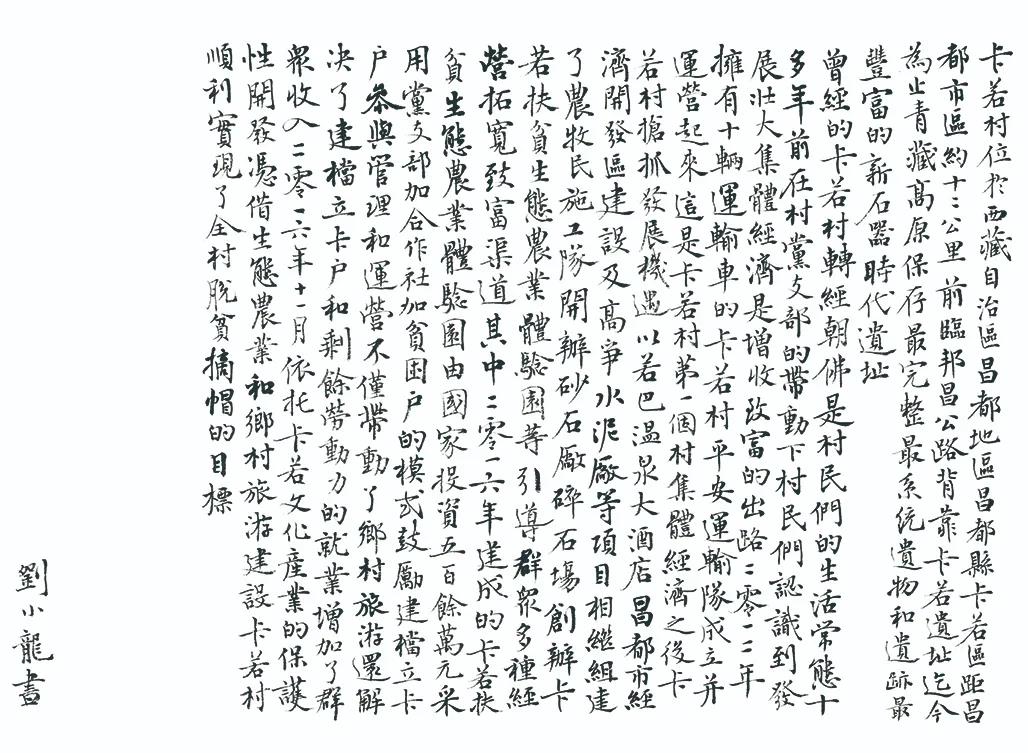 卡若村位於西藏自治區昌都地區昌都縣卡若區距昌
都市區約十二公里前臨邦昌公路背靠卡若遺址迄今
為止青藏高原保存最完整最系統遺物和遺跡最
豐富的新石器時代遺址
曾經的卡若村轉經朝佛是村民們的生活常態十
多年前在村黨支部的帶動下村民們認識到發
展壯大集體經濟是增收致富的出路二零一二年
擁有十輛運輸車的卡若村平安運輸隊成立并
運營起來這是卡若村第一個村集體經濟之後卡
若村搶抓發展機遇以若巴溫泉大酒店昌都市經
濟開發區建設及高爭水泥廠等項目相繼組建
了農牧民施工隊開辦砂石廠碎石場創辦卡
若扶貧生態農業體驗園等引導群眾多種經
營拓寬致富渠道其中二零一六年建成的卡若扶
貧生態農業體驗園由國家投資五百餘萬元采
用黨支部加合作社加貧困户的模式鼓勵建檔立卡
户參與管理和運營不僅帶動了鄉村旅游還解
决了建檔立卡户和剩餘勞動力的就業增加了群
眾收入二零一六年十一月依托卡若文化產業的保護
性開發憑借生態農業和鄉村旅游建設卡若村
順利實現了全村脫貧摘帽的目標
劉小龍書